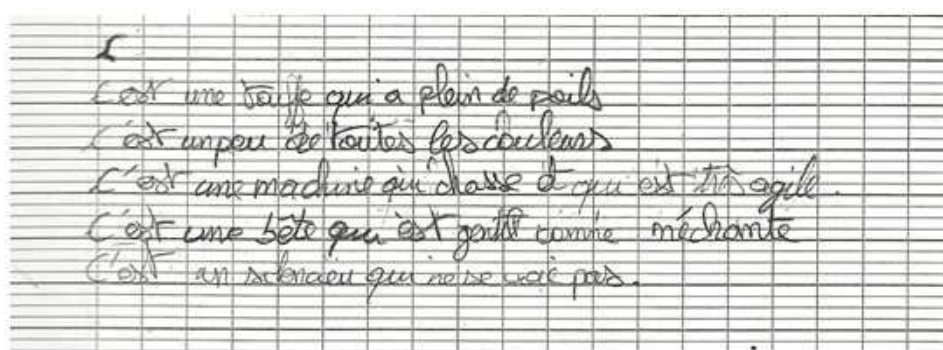 C
C'est une touffe qui a plein de poils
C'est un peu de toutes les couleurs
C'est une machine qui chasse et qui est très agile.
C'est une bête qui est gentil comme méchante
C'est un silencieu qui ne se voie pas.